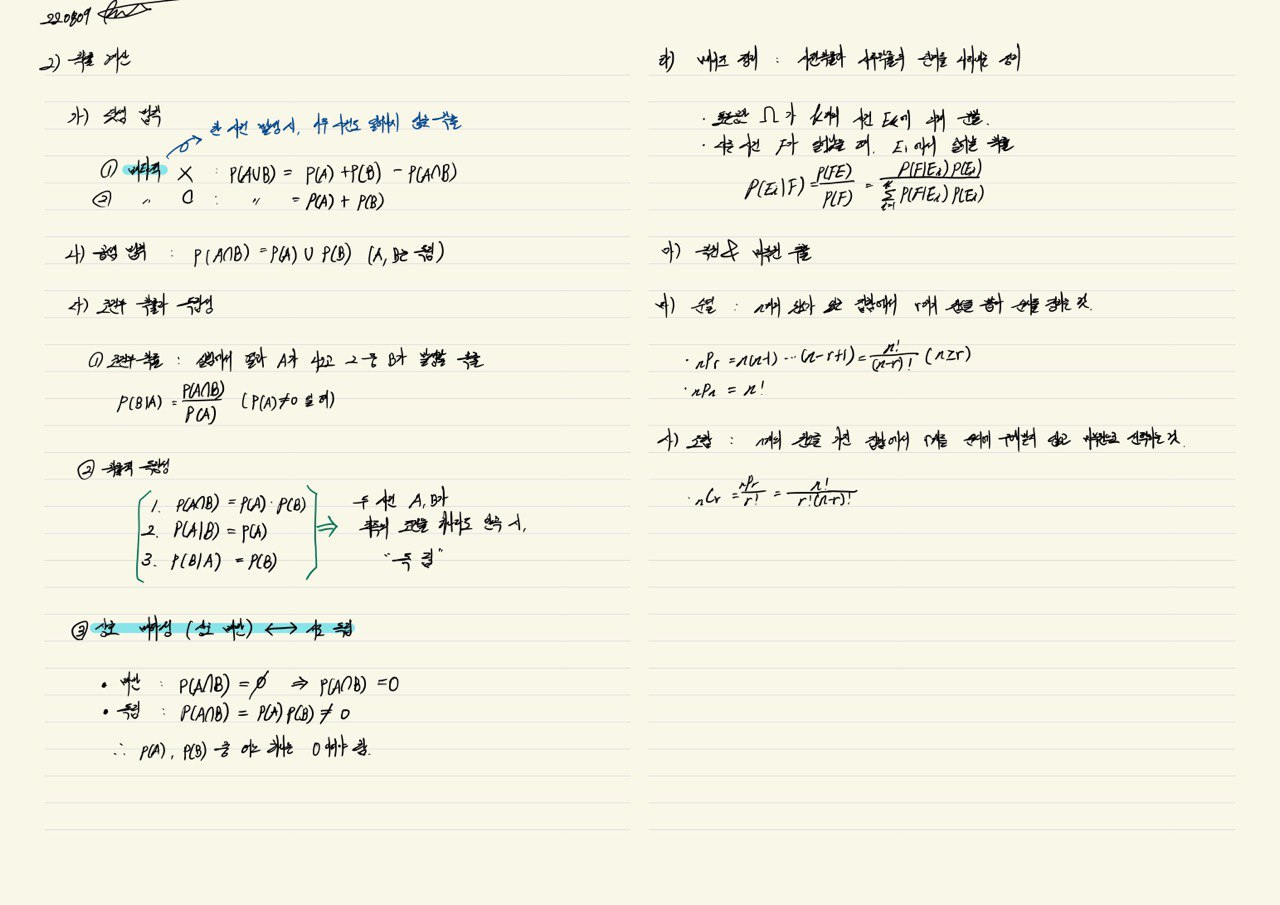 220809
2) 확률 계산
가) 덧셈 법칙
한 사건 발생시, 다른 사건도 일어나지 않을 확률
① 배타적 X : P(A∪B) = P(A) + P(B) - P(A∩B)
② 〃 O : 〃 = P(A) + P(B)
나) 곱셈 법칙 : P(A∩B) = P(A) ∪ P(B) (A, B는 독립)
다) 조건부 확률과 독립성
① 조건부 확률 : 실험에서 결과 A가 나오고 그 중 B가 발생할 확률
P(B|A) = P(A∩B) / P(A) (P(A)≠0 일 때)
② 확률적 독립성
1. P(A∩B) = P(A)·P(B)
2. P(A|B) = P(A)
3. P(B|A) = P(B)
⇒ 두 사건 A, B가
의 조건을 하나라도 만족 시,
"독립"
③ 상호 배타성 (상호 배반) ↔ 상호 독립
• 배반 : P(A∩B) = ∅ ⇒ P(A∩B) = 0
• 독립 : P(A∩B) = P(A)P(B) ≠ 0
∴ P(A), P(B) 중 어느 하나는 0이어야 함.
라) 베이즈 정리 : 사전확률과 사후확률의 관계를 나타내는 정리
· 표본공간 Ω가 k개의 사건 Ek에 의해 분할.
· 사건 F가 일어났을 때, Ei에서 일어난 확률
P(Ei|F) = P(FE) / P(F) = P(F|Ei)P(Ei) / Σ P(F|Ei)P(Ei)
마) 조건 & 비조건 확률
바) 순열 : n개의 원소 집합에서 r개의 원소를 뽑아 순서를 정하는 것.
· nPr = n(n-1) ⋯ (n-r+1) = n! / (n-r)! (n≥r)
· nPn = n!
사) 조합 : n개의 원소를 가진 집합에서 r개를 순서에 구애받지 않고 선택하는 것.
· nCr = nPr / r! = n! / r!(n-r)!